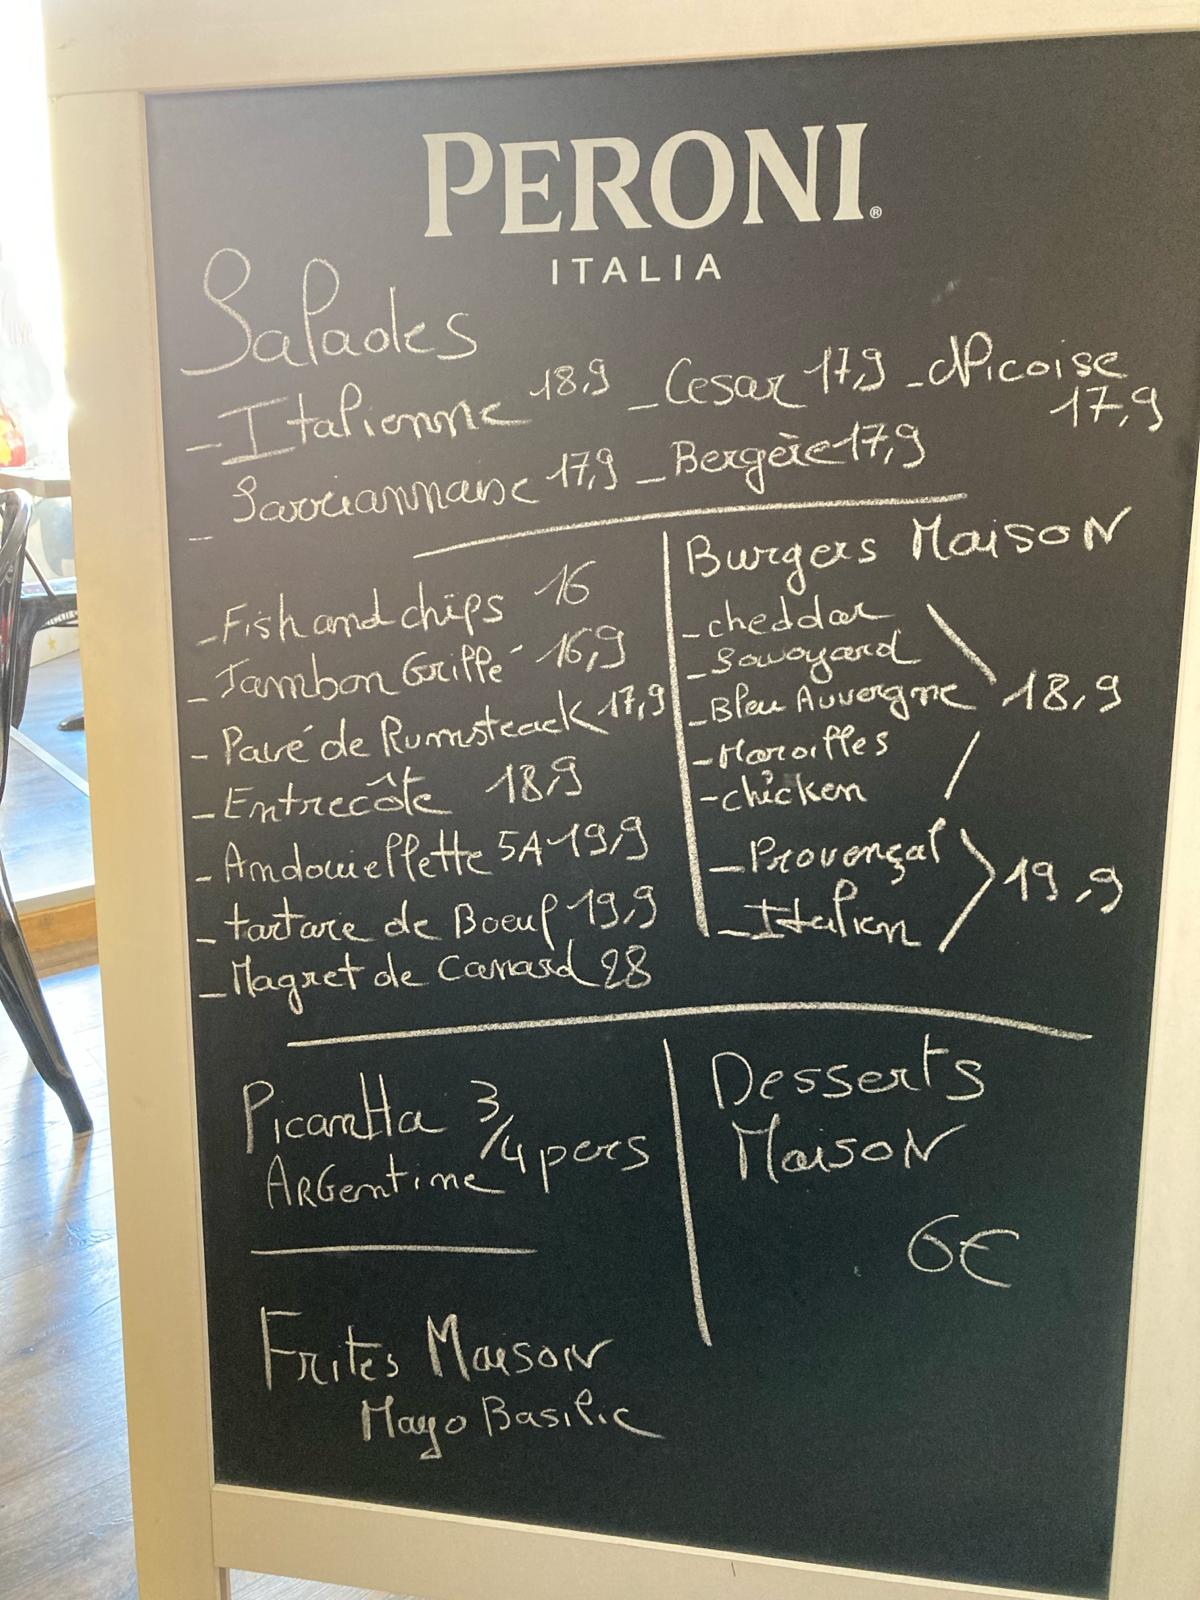 PERONI®
ITALIA
Salades
- Italienne 18,9 - Cesar 17,9 - Niçoise 17,9
- Sarriannaise 17,9 - Bergère 17,9
- Fish and chips 16
- Jambon Grillé 16,9
- Pavé de Rumsteack 17,9
- Entrecôte 18,9
- Andouiellette 5A 19,9
- tartare de Boeuf 19,9
- Magret de Canard 28
Burgers Maison
- cheddar
- Savoyard
- Bleu Auvergne 18,9
- Maroilles
- chicken
- Provençal
- Italien 19,9
Picantta 3/4 pers
ARGentine
Desserts
Maison
6€
Frites Maison
Mayo Basilic